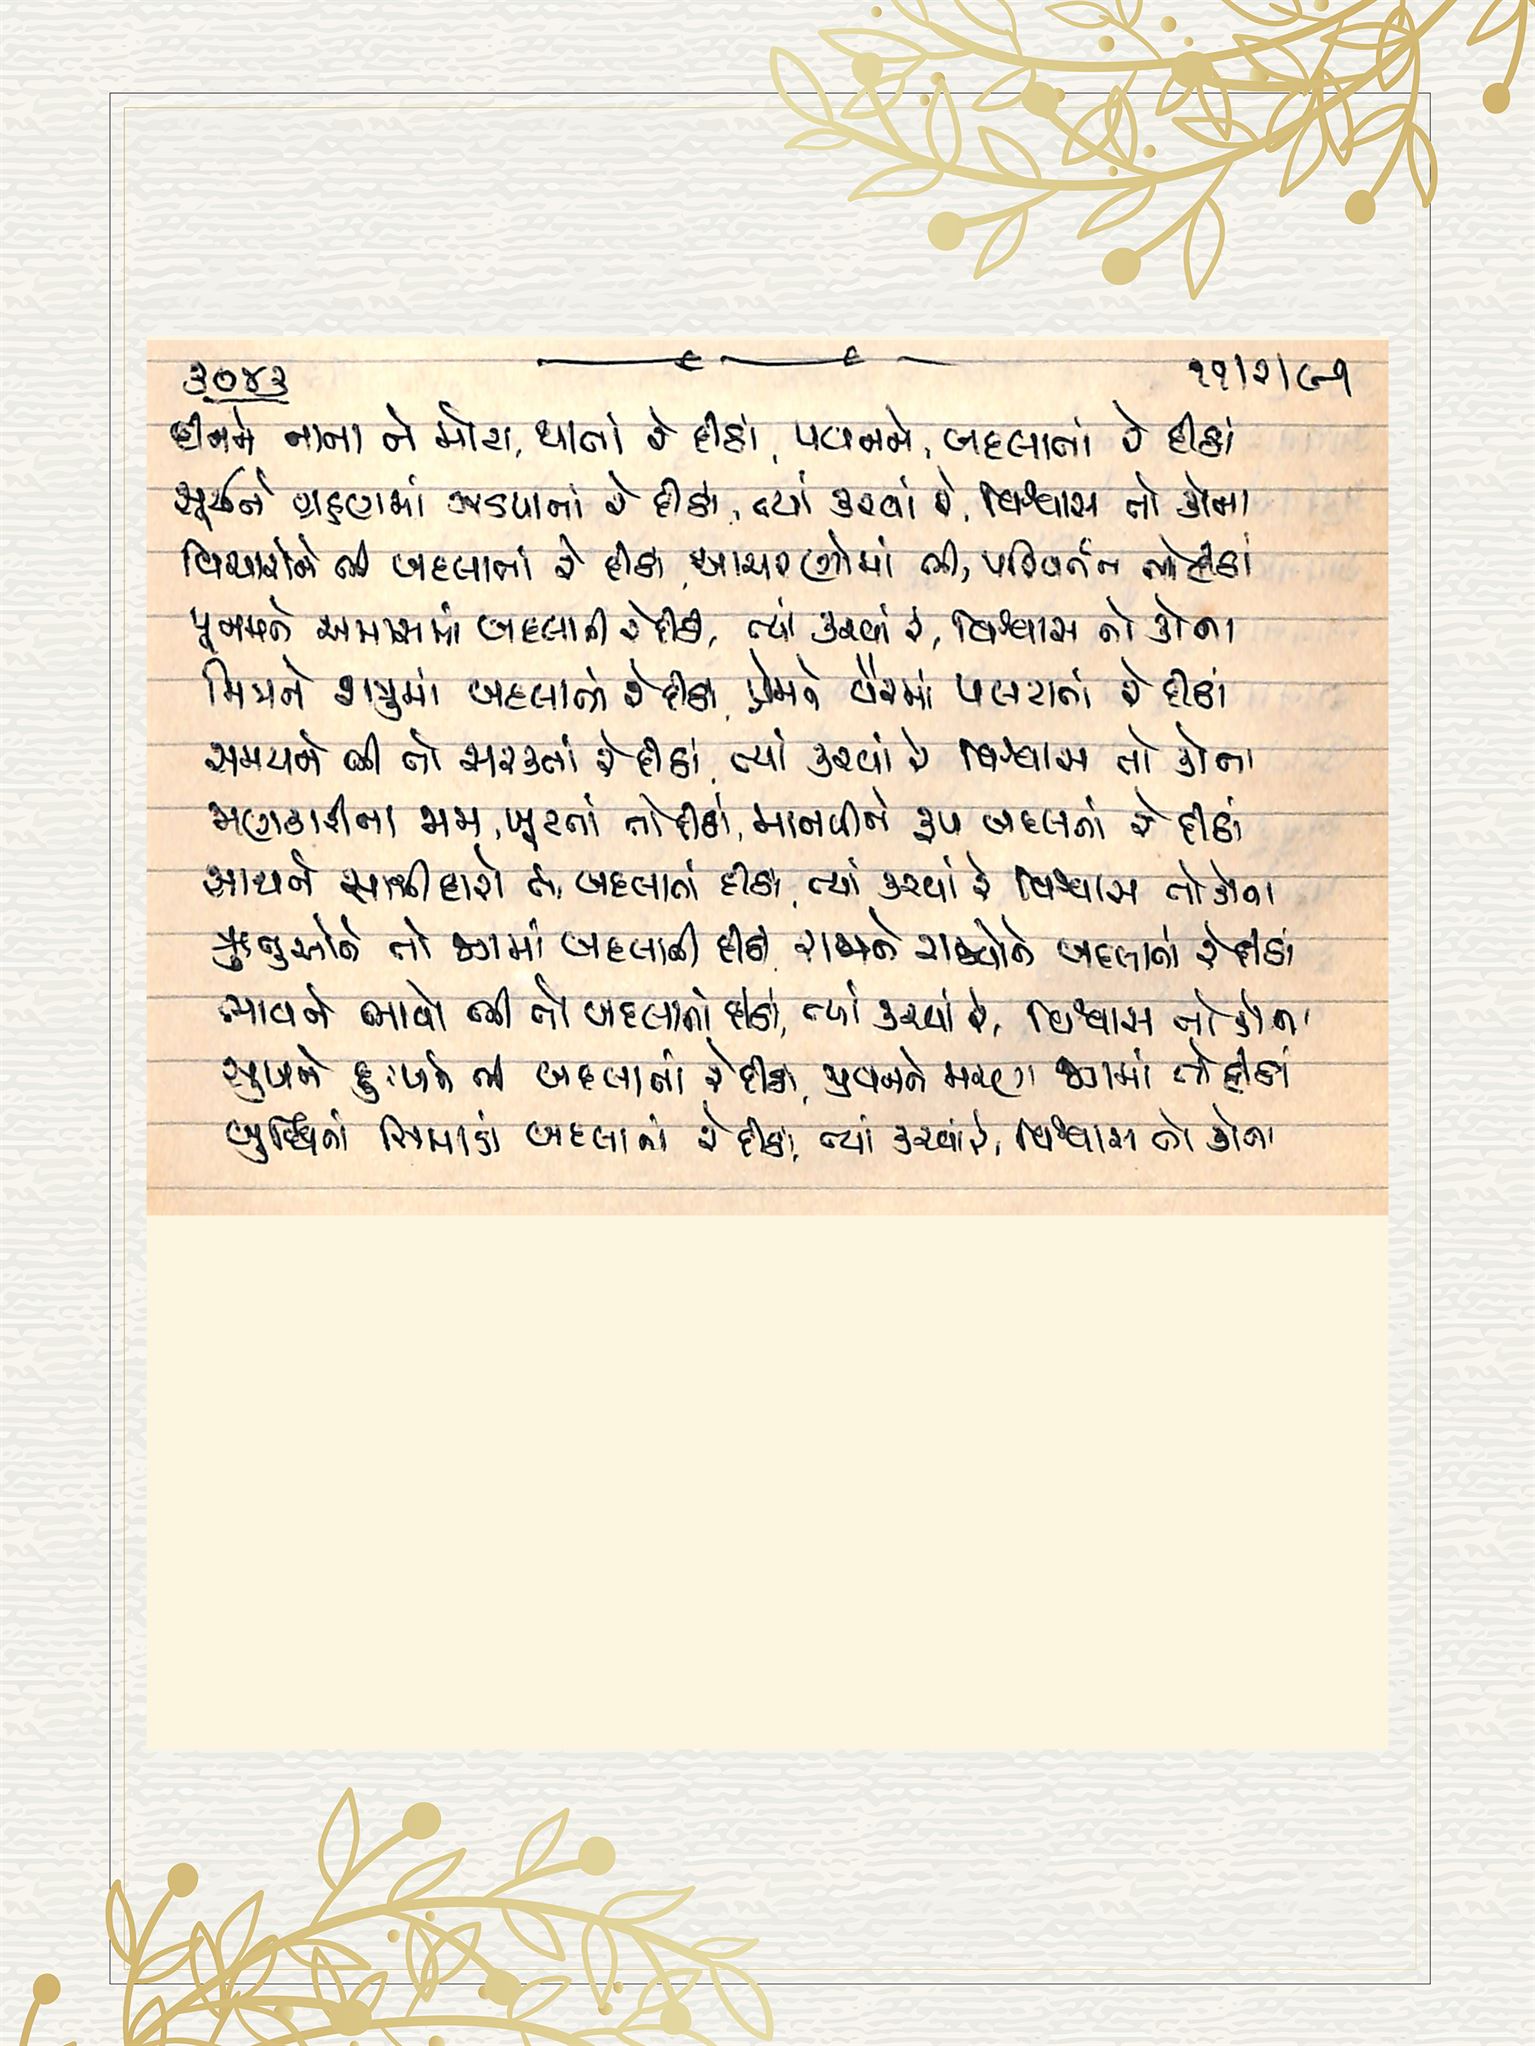 ૩૦૪૩
૧૧/૨/૯૧
દીનને નાના ને મોટા, થાતાં રે દીઠાં, પવનને, બદલાતાં રે દીઠાં
સૂર્યને ગ્રહણમાં ઝડપાતાં રે દીઠાં, ત્યાં કરવાં રે, વિશ્વાસ તો કોના
વિચારોને ભી બદલાતાં રે દીઠાં, આચરણોમાં ભી, પરિવર્તન તો દીઠાં
પૂનમને અમાસમાં બદલાતી રે દીઠી, ત્યાં કરવાં રે, વિશ્વાસ તો કોના
મિત્રને શત્રુમાં બદલાતાં રે દીઠાં, પ્રેમને વૈરમાં પલટાતાં રે દીઠાં
સમયને ભી તો સરકતાં રે દીઠાં, ત્યાં કરવાં રે વિશ્વાસ તો કોના
મણકારીના ભ્રમ, તૂટતાં તો દીઠાં, માનવીને રૂપ બદલતાં રે દીઠાં
આજને કાલમાં તો, બદલાતાં દીઠાં, ત્યાં કરવાં રે વિશ્વાસ તો કોના
ઋતુઓને તો જગમાં બદલાતી દીઠી, રાજને રાજવીને બદલાતાં રે દીઠાં
ભાવને ભાવો ભી તો બદલાતાં દીઠાં, ત્યાં કરવાં રે, વિશ્વાસ તો કોના
સુખને દુઃખને ભી બદલાતાં રે દીઠાં, જીવનને મરણ જગમાં તો દીઠાં
બુદ્ધિનાં સિમાડાં બદલાતાં રે દીઠાં, ત્યાં કરવાં રે, વિશ્વાસ તો કોના